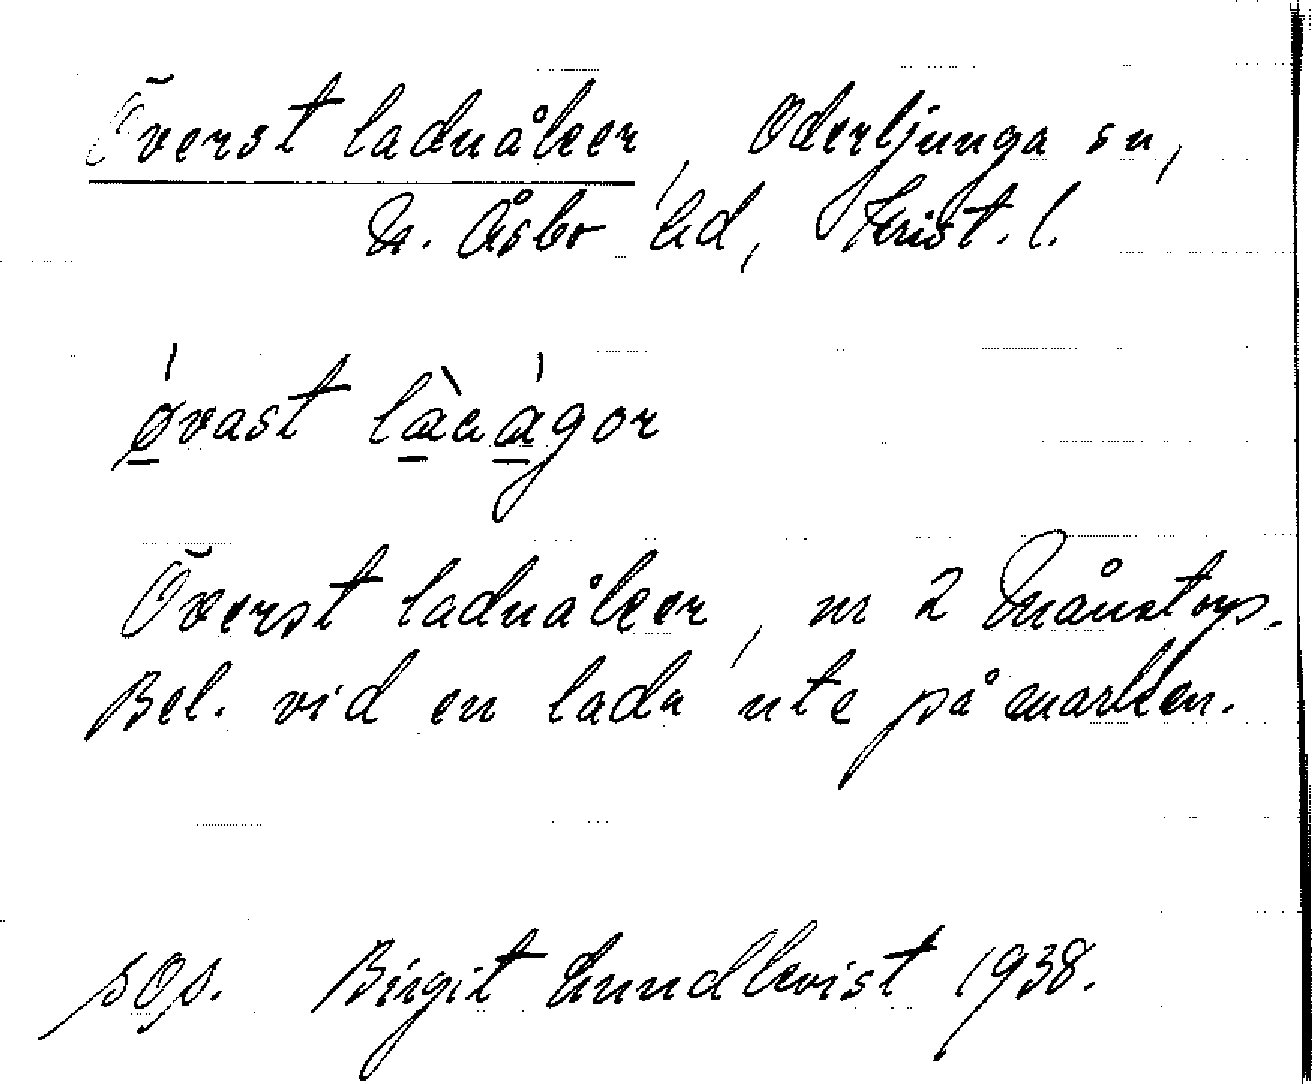 Överst laduåker, Oderljunga sn,
N. Åsbo hd, Krist. l.
øvast làaágor
Överst laduåker, nr 2 Månstorp.
Bel. vid en lada ute på marken.
sOp. Birgit Lundkvist 1938.